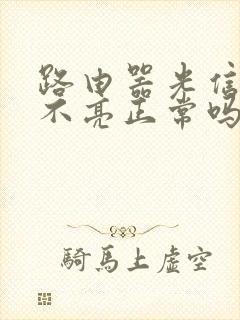 路由器光信
不亮正常吗
骑馬上虚空